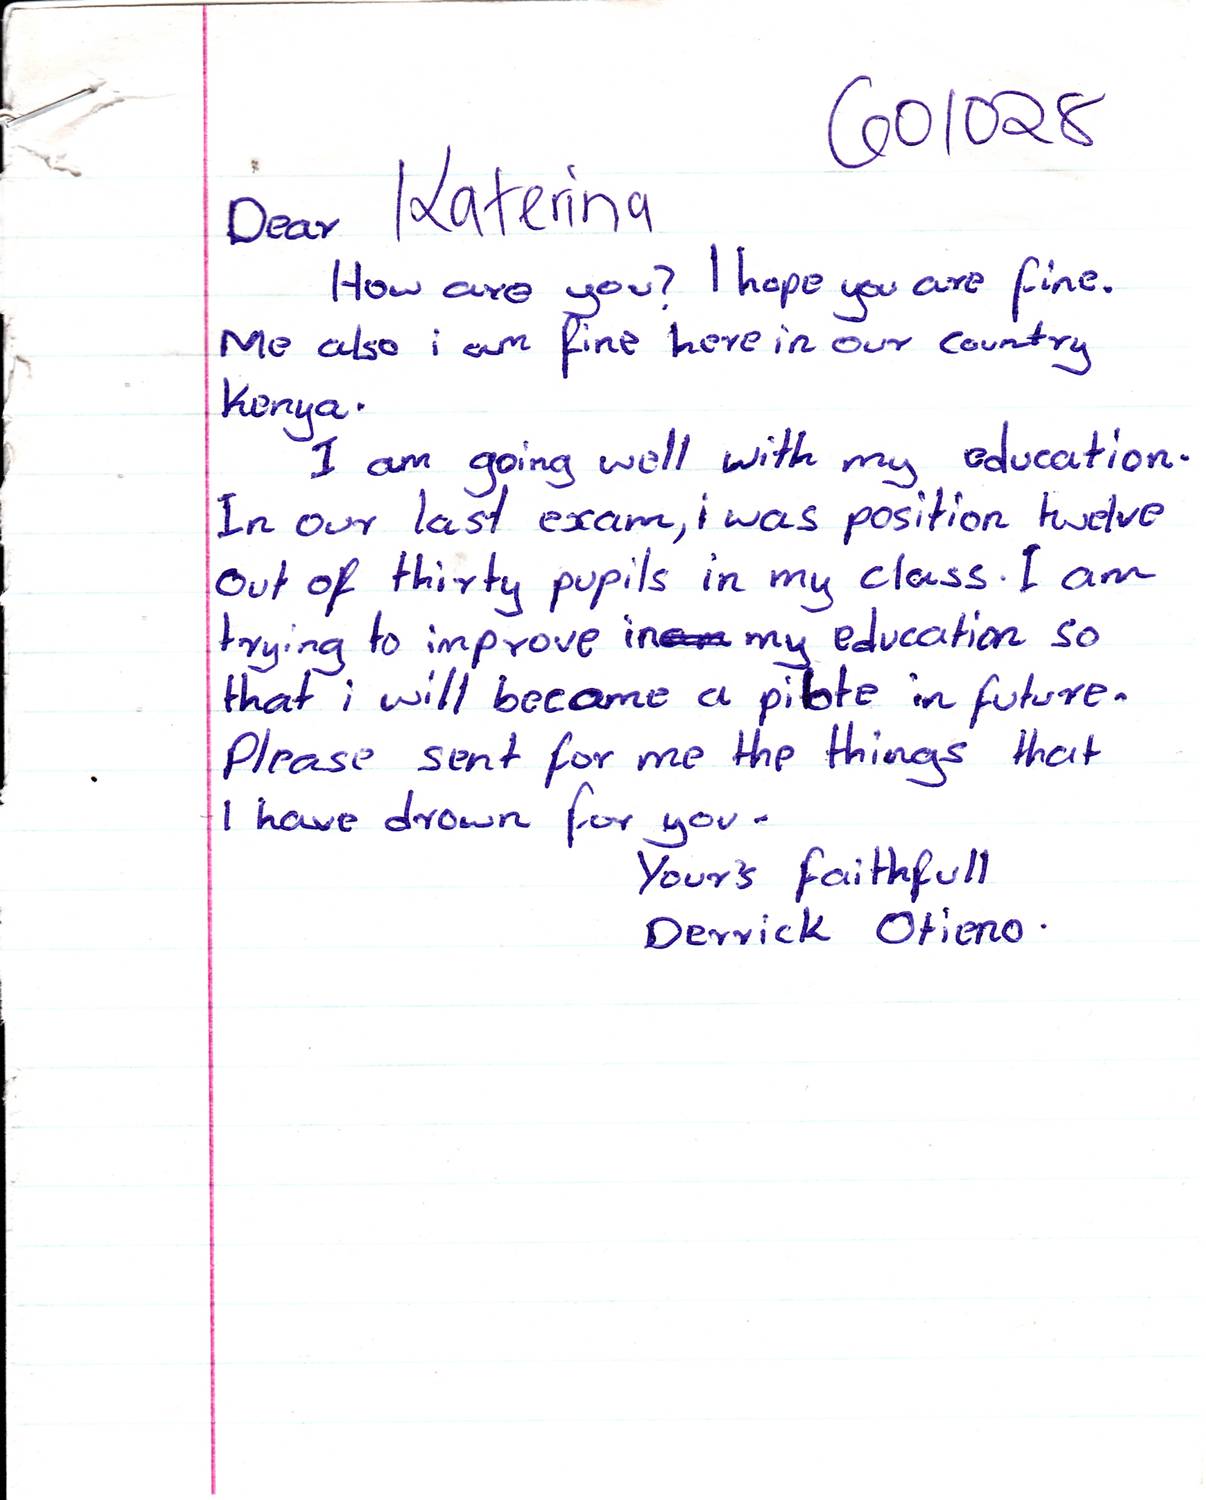 601028
Dear Katerina
How are you? I hope you are fine.
Me also i am fine here in our country
Kenya.
I am going well with my education.
In our last exam, i was position twelve
out of thirty pupils in my class. I am
trying to improve in my education so
that i will became a pilote in future.
Please sent for me the things that
I have drown for you.
Your's faithfull
Derrick Otieno.